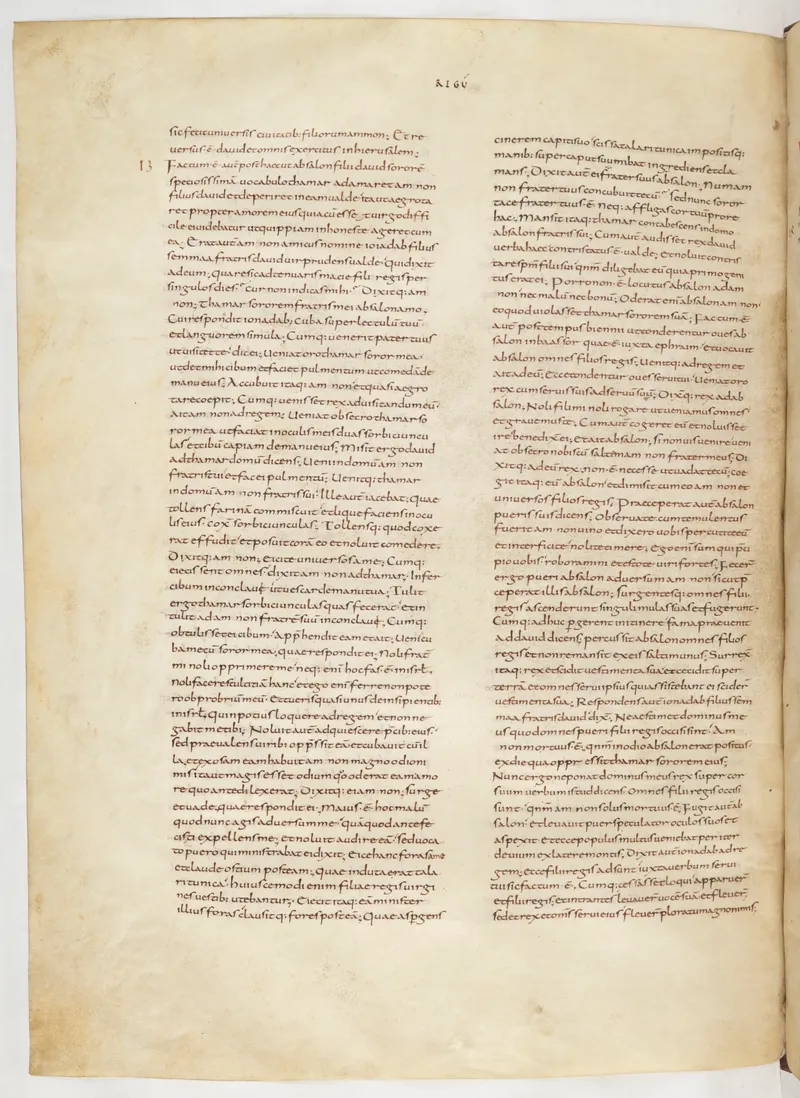 REGU
sic fecit universis civitatib: filiorum ammon; Et re
versus ē david et omnis exercitus in hierusalem;
13
Factum ē aut̄ post haec ut absalon filii david sororē
speciosissimā vocabulo thamar adamaret amnon
filius david et deperiret in eam valde ita ut aegrota
ret propter amorem eius quia cū esset virgo diffi
cile ei videbatur ut quippiam inhoneste ageret cum
ea; Erat aut amnon amicus nomine ionadab filius
semmaa fratris david vir prudens valde. Qui dixit
ad eum; quare sic adtenuaris macie fili regis per
singulos dies; cur non indicas mihi; Dixitq: am
non; thamar sororem fratris mei absalon amo;
Cui respondit ionadab; cuba super lectulū tuū
et languorem simula; Cumq: venerit pater tuus
ut visitet te dic ei; Veniat oro thamar soror mea
ut det mihi cibum et faciat pulmentum ut comedā de
manu eius; Accubuit itaq: amnon et quasi aegro
tare coepit; Cumq: venisset rex ad visitandum eū
ait amnon ad regem; Veniat obsecro thamar so
ror mea ut faciat in oculis meis duas sorbiciuncu
las et cibū capiam de manu eius; Misit ergo david
ad thamar domū dicens; Veni in domū amnon
fratris tui et fac ei pulmentū; Venitq: thamar
in domū amnon fratris sui; Ille aut iacebat; quae
tollens farinā commiscuit et liquefaciens in ocu
lis eius coxit sorbiciunculas; Tollensq: quod coxe
rat effudit et posuit corā eo et noluit comedere;
Dixitq: amnon; eicite universos a me; Cumq:
eiecissent omnes dixit amnon ad thamar; Infer
cibum in conclave ut vescar de manu tua; Tulit
ergo thamar sorbiciunculas quas fecerat et in
tulit ad amnon fratrē suū in conclave; Cumq:
obtulisset ei cibum adp̄hendit eam et ait; Veni cu
ba mecū soror mea; quae respondit ei; Noli frat̄
mi noli opprimere me neq: enī hoc fas ē in isrl;
Noli facere stultitiā hanc et ego enī ferre non pote
ro obprobriū meū; Et tu eris quasi unus de insipientib:
in isrl; Quin potius loquere ad regem et non ne
gabit me tibi; Noluit aut adquiescere p̄cib: eius
sed praevalens viribus opp̄ssit eā et cubavit cū il
la; et exosam eam habuit amnon magno odio ni
mis ita ut magis esset odium quo oderat eam amo
re quo ante dilexerat; Dixitq: ei amnon; surge
et vade; quae respondit ei; Maius ē hoc malū
quod nunc agis adversum me quā quod ante fe
cisti expellens me; et noluit audire eā sed voca
to puero qui ministrabat ei dixit; eice hanc foras a me
et claude ostium post eam; quae induta erat tala
ri tunica; huiuscemodi enim filiae regis virgi
nes vestib: utebantur; Eiecit itaq: eā minister
illius foras clausitq: fores post eā; Quae aspgens
cinerem capiti suo scissa talari tunica impositisq:
manib: super caput suum ibat ingrediens et cla
mans; Dixit aut ei frater suus absalon; Numam
non frater tuus concubuit tecū; sed nunc soror
tace frater tuus ē neq: affligas cor tuū pro re
hac; Mansit itaq: thamar contabescens in domo
absalon fratris sui; Cum aut audisset rex david
verba haec contristatus ē valde; et noluit contris
tare spm filii sui qnm diligebat eū quia primogeni
tus erat ei; Porro non ē locutus absalon ad am
non nec malū nec bonū; Oderat enī absalon amnon
eo quod violasset thamar sororem suā; Factum ē
aut post tempus biennii ut tonderentur oves ab
salon in baasor quae ē iuxta ephraim et vocavit
absalon omnes filios regis; Venitq: ad regem et
ait ad eū; Ecce tondentur oves servi tui veniat oro
rex cum servis suis ad servū suū; Dixitq: rex ad ab
salon; Noli fili mi noli rogare ut veniamus omnes
et gravemus te; Cum aut cogeret eū et noluisset
ire benedixit ei; et ait absalon; si non vis venire veni
at obsecro nobiscū saltem amnon frater meus; Di
xitq: ad eū rex; non ē necesse ut vadat tecū; coe
git itaq: eū absalon et dimisit cum eo amnon et
universos filios regis; Praeceperat aut absalon
pueris suis dicens; Observate cum temulentus
fuerit amnon vino et dixero vobis percutite eū
et interficite nolite timere; Ego enī sum qui p̄ci
pio vobis roboramini et estote viri fortes; Fecer̄
ergo pueri absalon adversum amnon sicut p̄
ceperat illis absalon; surgentesq: omnes filii
regis ascenderunt singuli mulas suas et fugerunt;
Cumq: adhuc pgerent in itinere fama praevenit
ad david dicens; percussit absalon omnes filios
regis et non remansit ex eis saltim unus; Surrex̄
itaq: rex et scidit vestimenta sua et cecidit super
terrā et omnes servi ipsius qui assistebant ei scider̄
vestimenta sua; Respondens aut ionadab filius sem
maa fratris david dix̄; Ne aestimet dominus me
us quod omnes pueri filii regis occisi sint; Am
non mortuus ē; qnm in odio absalon erat positus
ex die qua oppressit thamar sororem eius;
Nunc ergo ne ponat dominus meus rex super cor
suum verbum istud dicens; Omnes filii regis occisi
sunt; qnm amnon solus mortuus ē; Fugit aut ab
salon; et levavit puer speculator oculos suos et
aspexit et ecce populus multus veniebat per iter
devium ex latere montis; Dixit aut ionadab ad re
gem; Ecce filii regis adsunt iuxta verbum servi
tui sic factum ē; Cumq: cessasset loqui apparuer̄
et filii regis; et intrantes levaver̄ vocē suā et flever̄
sed et rex et oms servi eius flever̄ ploratu magno nimis;